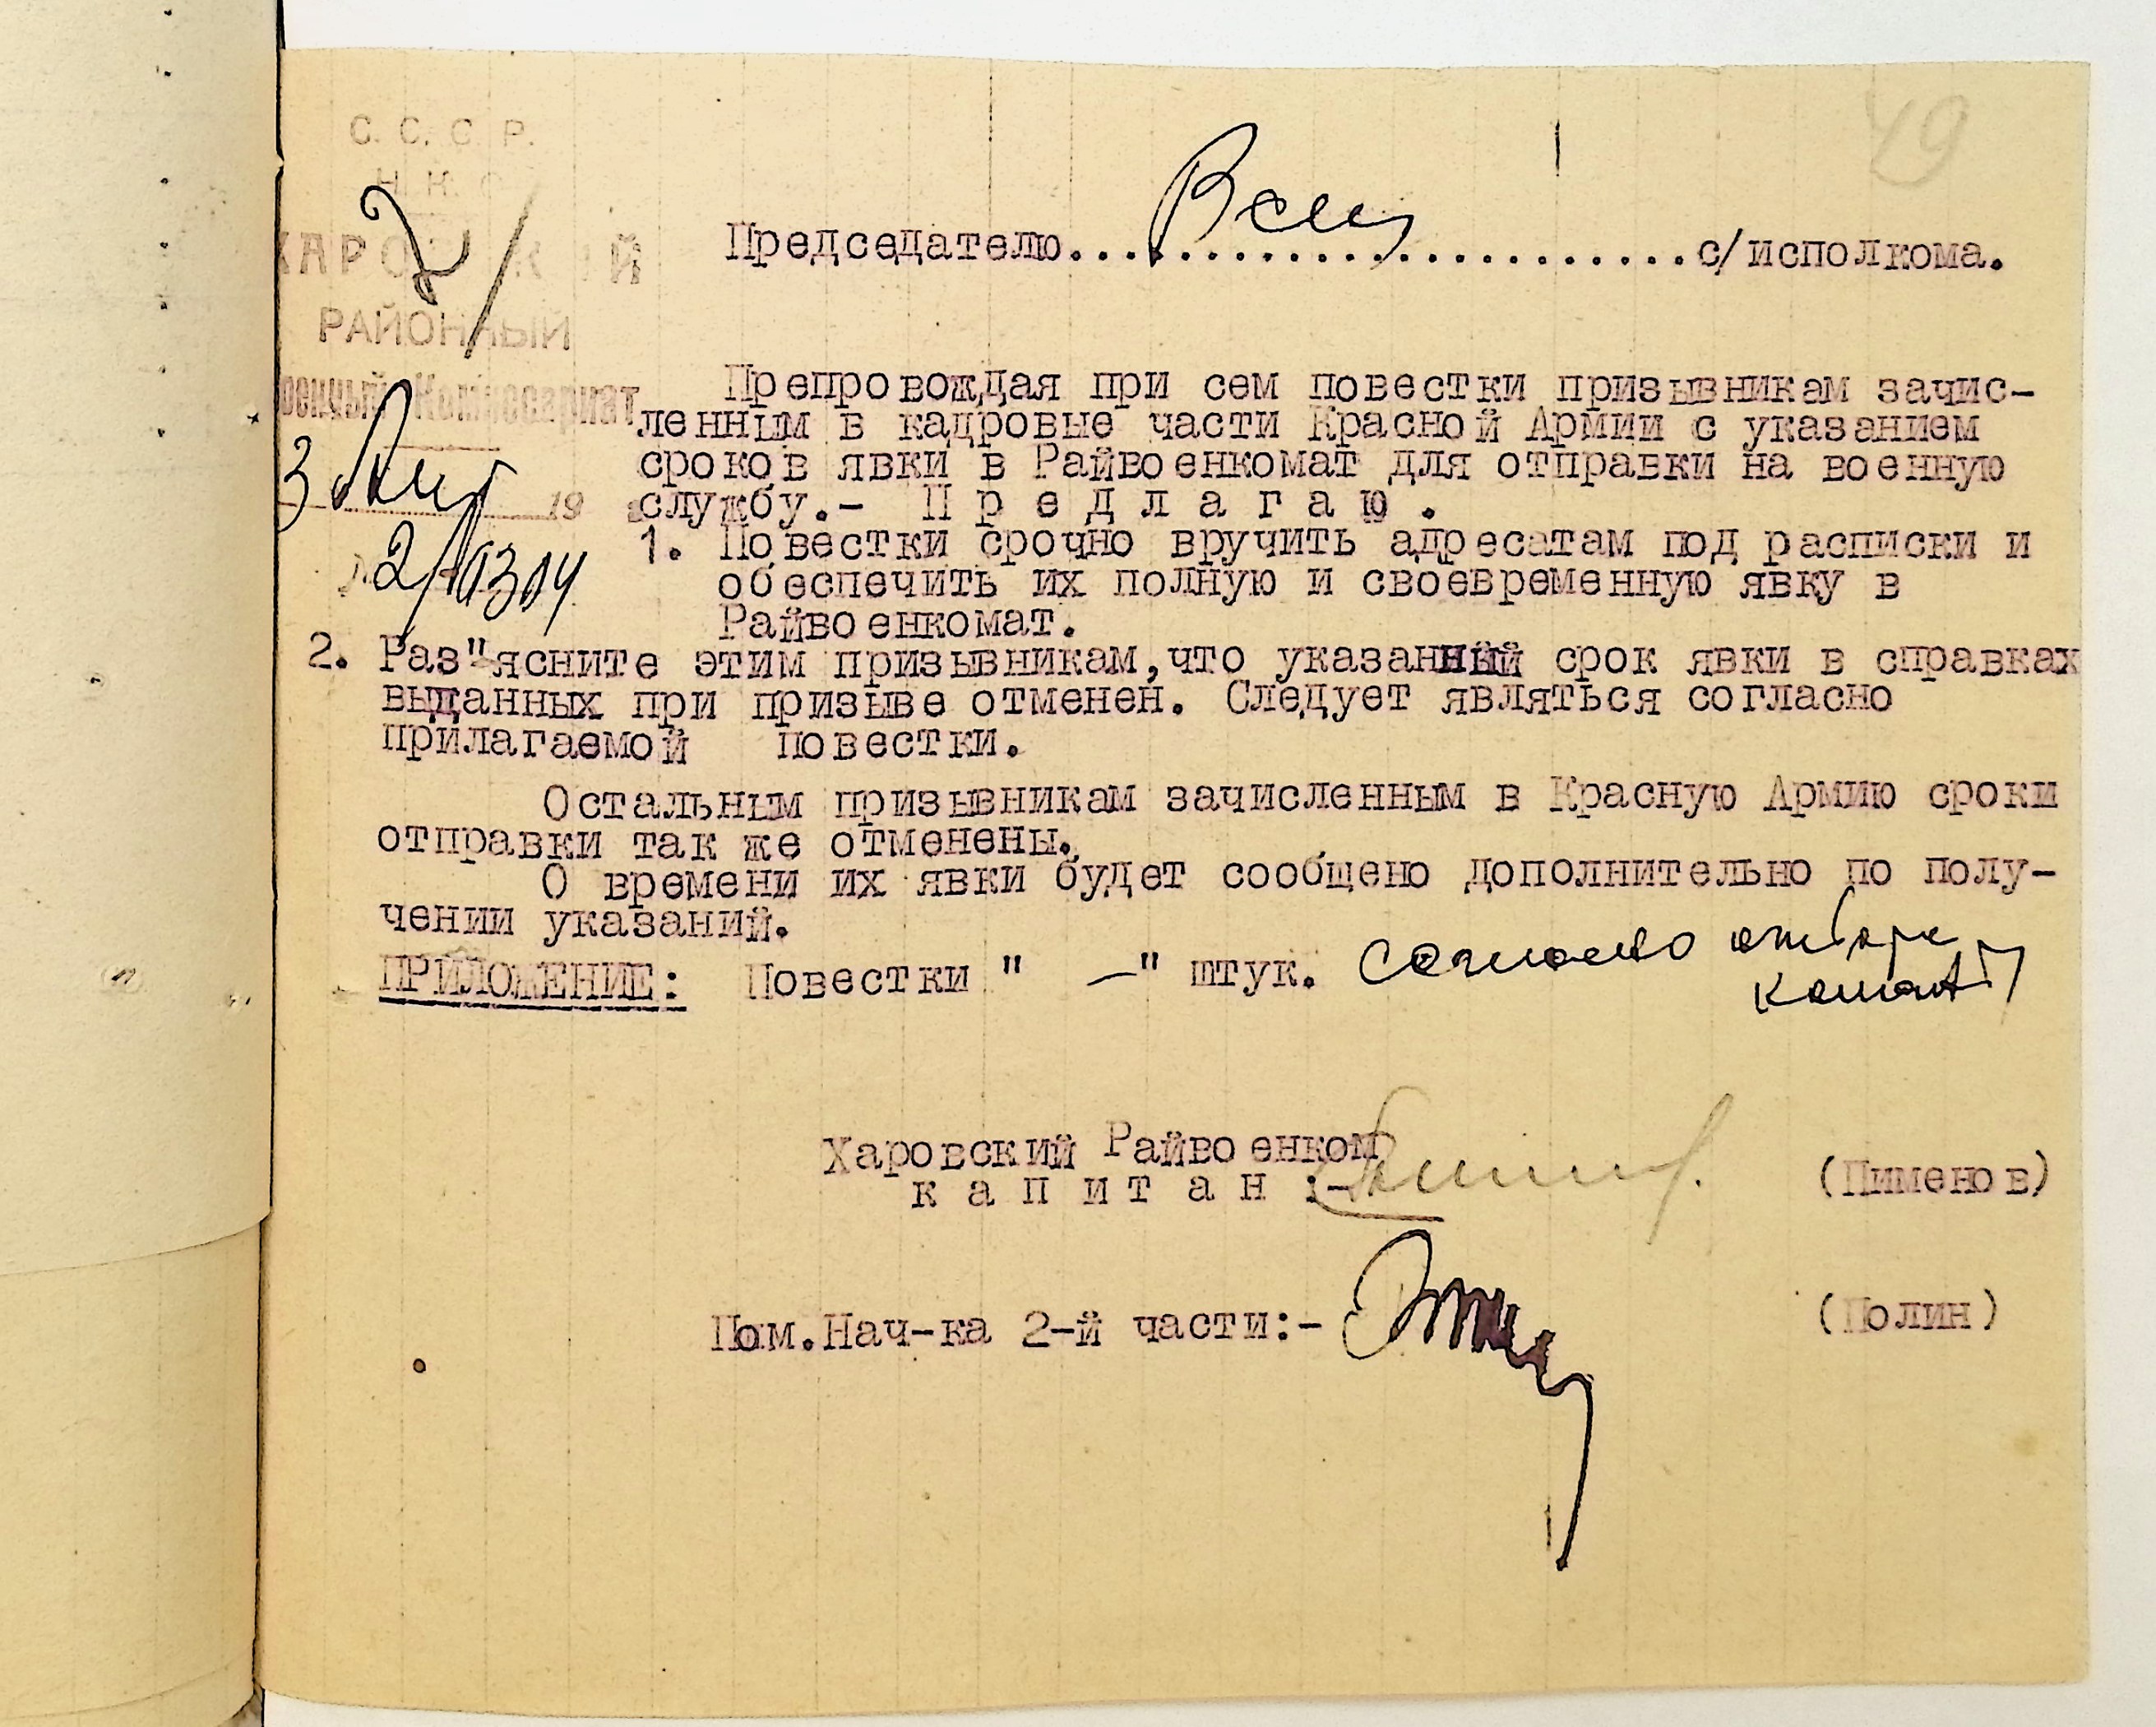 49
С. С. С. Р.
Н. К. О.
РАЙОННЫЙ
Председателю.......................с/исполкома.
Всем
Препровождая при сем повестки призывникам зачис-
ленным в кадровые части Красной Армии с указанием
сроков явки в Райвоенкомат для отправки на военную
службу.- П р е д л а г а ю .
19
1. Повестки срочно вручить адресатам под расписки и
обеспечить их полную и своевременную явку в
Райвоенкомат.
2. Раз"ясните этим призывникам,что указанный срок явки в справках
выданных при призыве отменен. Следует являться согласно
прилагаемой повестки.
Остальным призывникам зачисленным в Красную Армию сроки
отправки так же отменены.
О времени их явки будет сообщено дополнительно по полу-
чении указаний.
ПРИЛОЖЕНИЕ: Повестки " —" штук. согласно
Харовский Райвоенком
к а п и т а н :- (Пименов)
Пом.Нач-ка 2-й части:- (Полин)